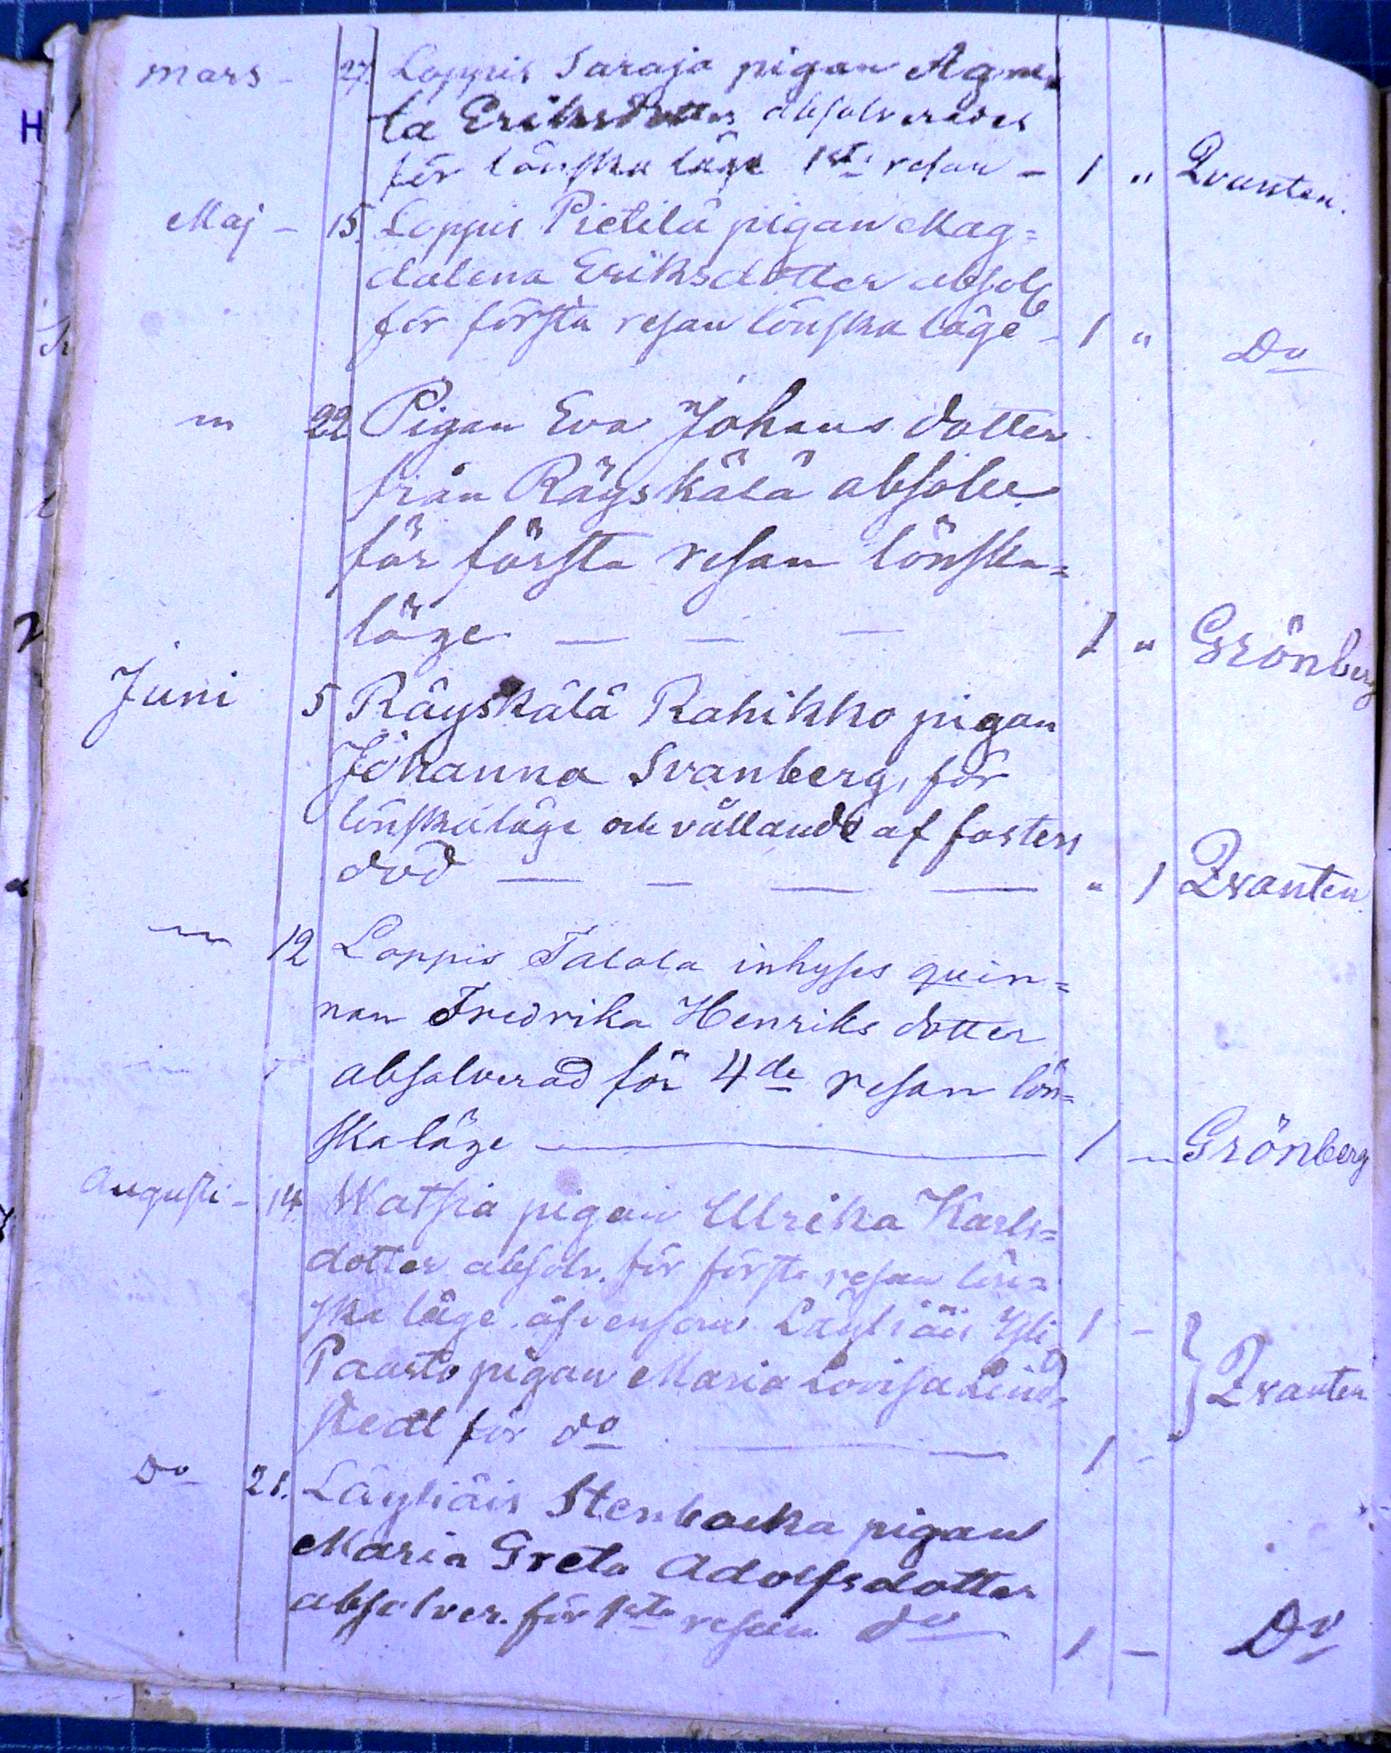 Mars - 27. Loppis Saraja pigan Agne
ta Eriksdotter absolverades
för lönska läge 1sta resan - 1 " Qvanten.
Maj - 15. Loppis Pietilä pigan Mag=
dalena Eriksdotter absolv
för första resan lönska läge - 1 " Do
" 22 Pigan Eva Johans dotter
från Rägskälä absolv.
för första resan lönska=
läge — — — 1 " Grönberg
Juni 5 Räyskälä Rahikko pigan
Johanna Svanberg, för
lönskaläge och vållande af fosters
död — — — — " 1 Qvanten
" 12 Loppis Talola inhyses quin=
nan Fredrika Henriks dotter
absolverad för 4de resan lön=
ska läge — 1 - Grönberg
Augusti - 14 Watsia pigan Ulrika Karls=
dotter absolv. för första resan lön=
ska läge äfvensom Läyliäis Yli 1 -
Paasto pigan Maria Lovisa Lind= } Qvanten
stedt för do — 1 -
Do 21. Läyliäis Stenbacka pigan
Maria Greta Adolfsdotter
absolver. för 1sta resan do 1 - Do